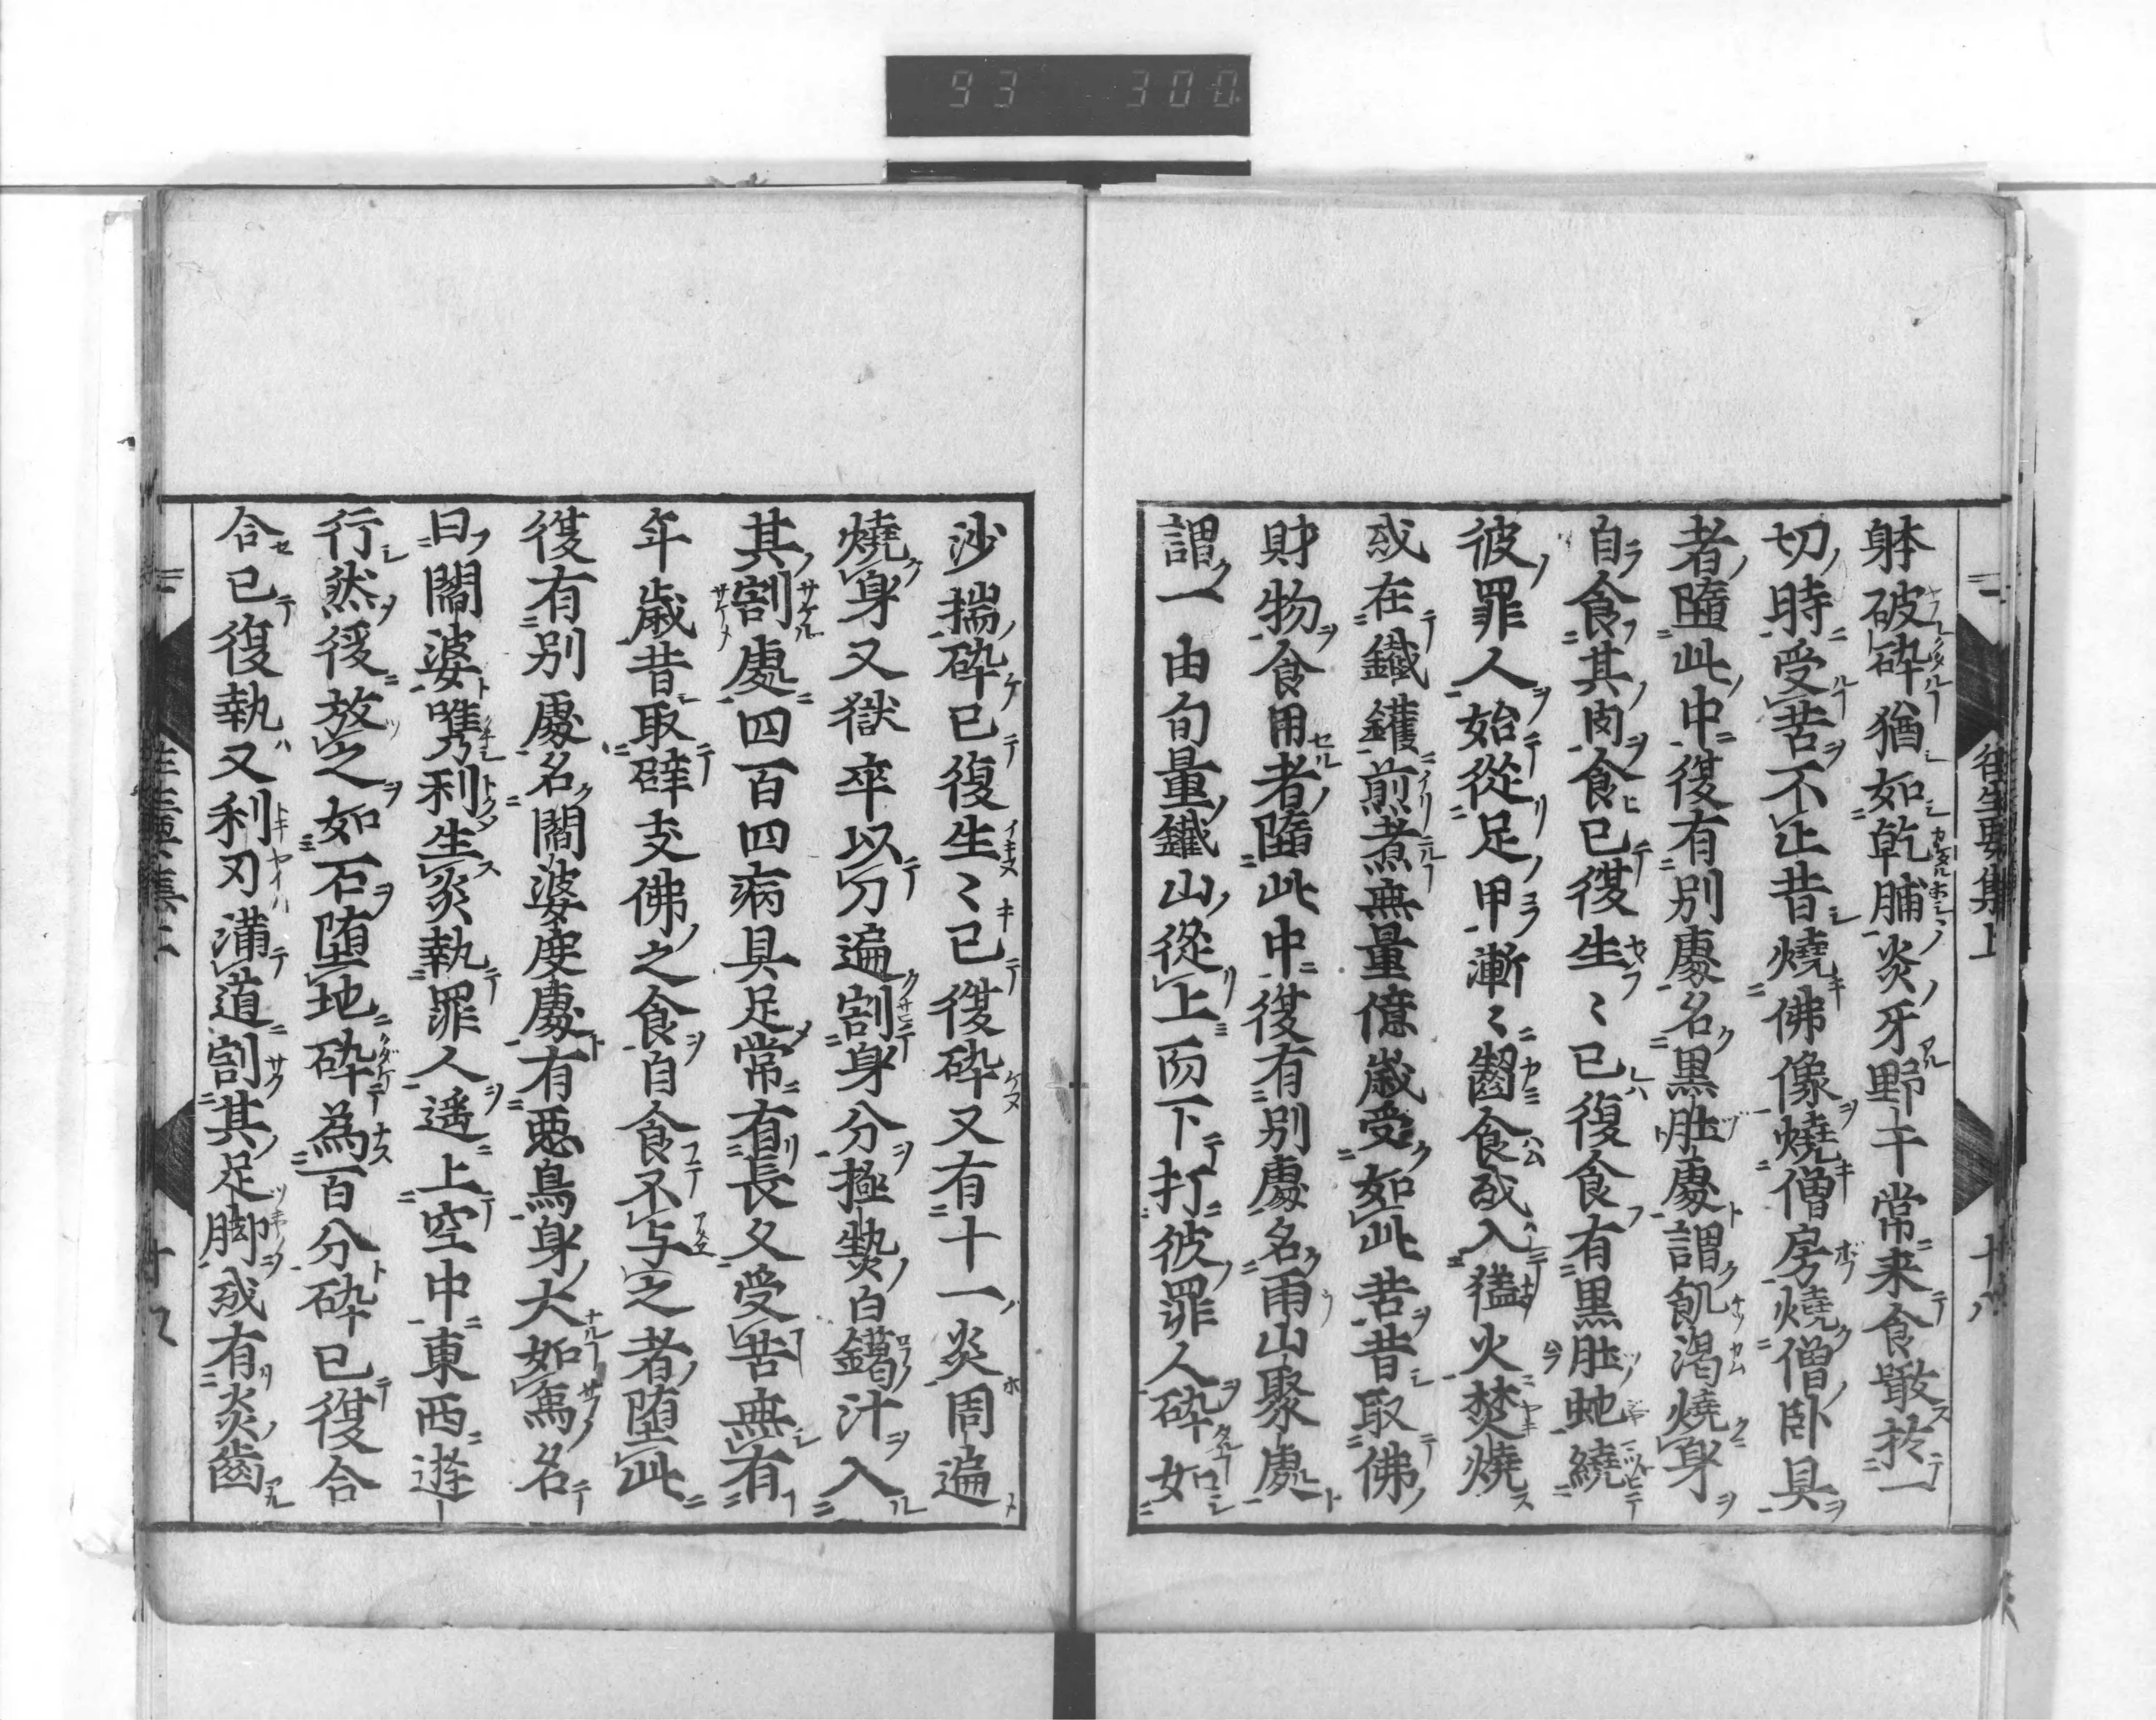 93 300
往生要集上 十八
躰破砕猶如乾脯炎牙野干常来食噉於一
切時受苦不止昔焼佛像焼僧房焼僧卧具
者堕此中復有別處名黒肚處謂飢渇焼身
自食其肉食已復生〻已復食有黒肚虵繞
彼罪人始從足甲漸〻齧食或入猛火焚焼
或在鐵鑊煎煮無量億歳受如此苦昔取佛
財物食用者堕此中復有別處名雨山聚處
謂一由旬量鐵山從上而下打彼罪人砕如
沙揣砕已復生〻已復砕又有十一炎周遍
焼身又獄卒以刀遍割身分極熱白鑞汁入
其割處四百四病具足常有長久受苦無有
年歳昔取辟支佛之食自食不与之者堕此
復有別處名閻婆度處有悪鳥身大如象名
曰閻婆嘴利生炎執罪人遥上空中東西遊
行然後放之如石堕地砕為百分砕已復合
合已復執又利刃満道割其足脚或有炎齒